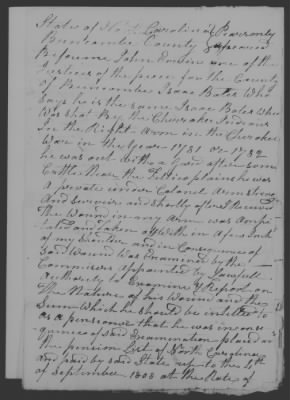 State of No. Carolina
Buncombe County Personly appeared
Before me John one of the
Justices of the peace for the County
of Buncombe Isaac Bates Who
Says he is the same Isaac Bates Who
Was Shot By the Cherokee Indians
In the Right Arm in the Cherokee
War in the Year 1781 or 1782
he was out With a Gard after Some
Cattle Near the plains he was
a private under Colonel Armstrong
And Sevier and Shortly after I Received
The Wound in my Arm was Ampu
tated and taken off With in a few Inch
of my Shoulder and in Consequence of
Said Wound Was Examined by the
Commissioners Appointed by Lawfull
Authority to Examine & Report on
The Nature of his Wound and the
Sum Which he Should be intitled to
as a pensioner that he was in conse
quence of Said Examination placed on
the pension List of North Carolina
and paid by Said State up to the 4th
of September 1808 at the Rate of